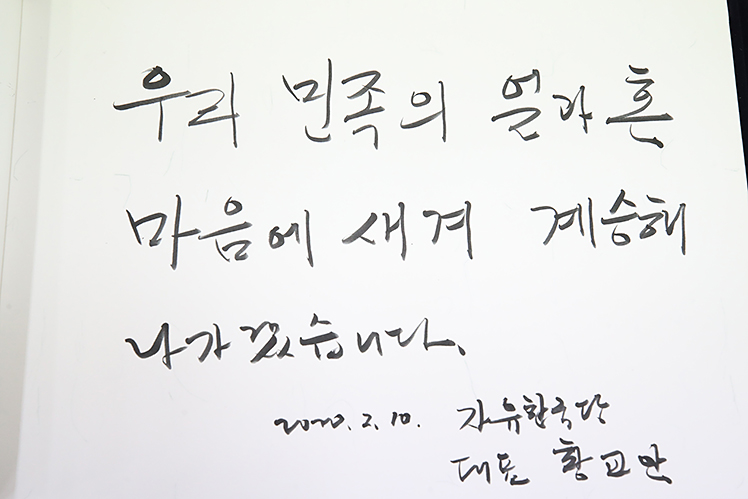 우리 민족의 얼과 혼
마음에 새겨 계승해
나가겠습니다.
2020. 2. 10. 자유한국당
대표 황교안